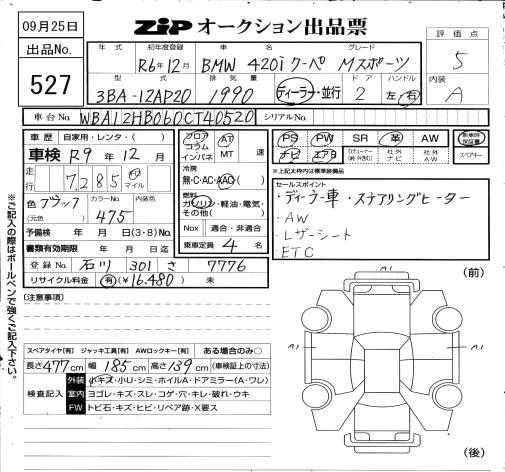 09月25日
ZIP オークション出品票
出品No.
527
年式 初年度登録 車名 グレード
R6年12月 BMW 420i クーペ Mスポーツ
型式 排気量 ドア ハンドル
3BA-12AP20 1990 ディーラー・並行 2 左・右
評価点
5
内装
A
車台No. WBA12HB060CT40520 シリアルNo.
車歴 自家用・レンタ・( )
車検 R9年 12月
走行 7,285 Km マイル
色 ブラック カラーNo. 475 内装色
(元色)
予備検 年 月 日(3・8)No.
書類有効期限 年 月 日迄
登録No. 石川 301 さ 7776
リサイクル料金 有(¥16,480) 未
フロア AT
コラム
インパネ MT 速
冷房
無・C・AC・AAC
燃料
ガソリン・軽油・電気・
その他( )
Nox 適合・非適合
乗車定員 4名
PS PW SR 革 AW 新車時保証書
ナビ エアB TVチューナー(純・外含む) 社外ナビ 社外AW スペアキー
※上記太枠内は標準装備品
セールスポイント
・ディーラー車・ステアリングヒーター
・AW
・レザーシート
・ETC
※ご記入の際はボールペンで強くご記入下さい。
□注意事項
スペアタイヤ[有] ジャッキ工具[有] AWロックキー[有] ある場合のみ○
長さ477cm 幅185cm 高さ139cm (車検証上の寸法)
検査記入 外装 小キズ・小U・シミ・ホイルA・ドアミラー(A・ワレ)
室内 ヨゴレ・キズ・スレ・コゲ・穴・キレ・破れ・ウキ
FW トビ石・キズ・ヒビ・リペア跡・X要ス
(前)
A1
A1
A1
A1
(後)